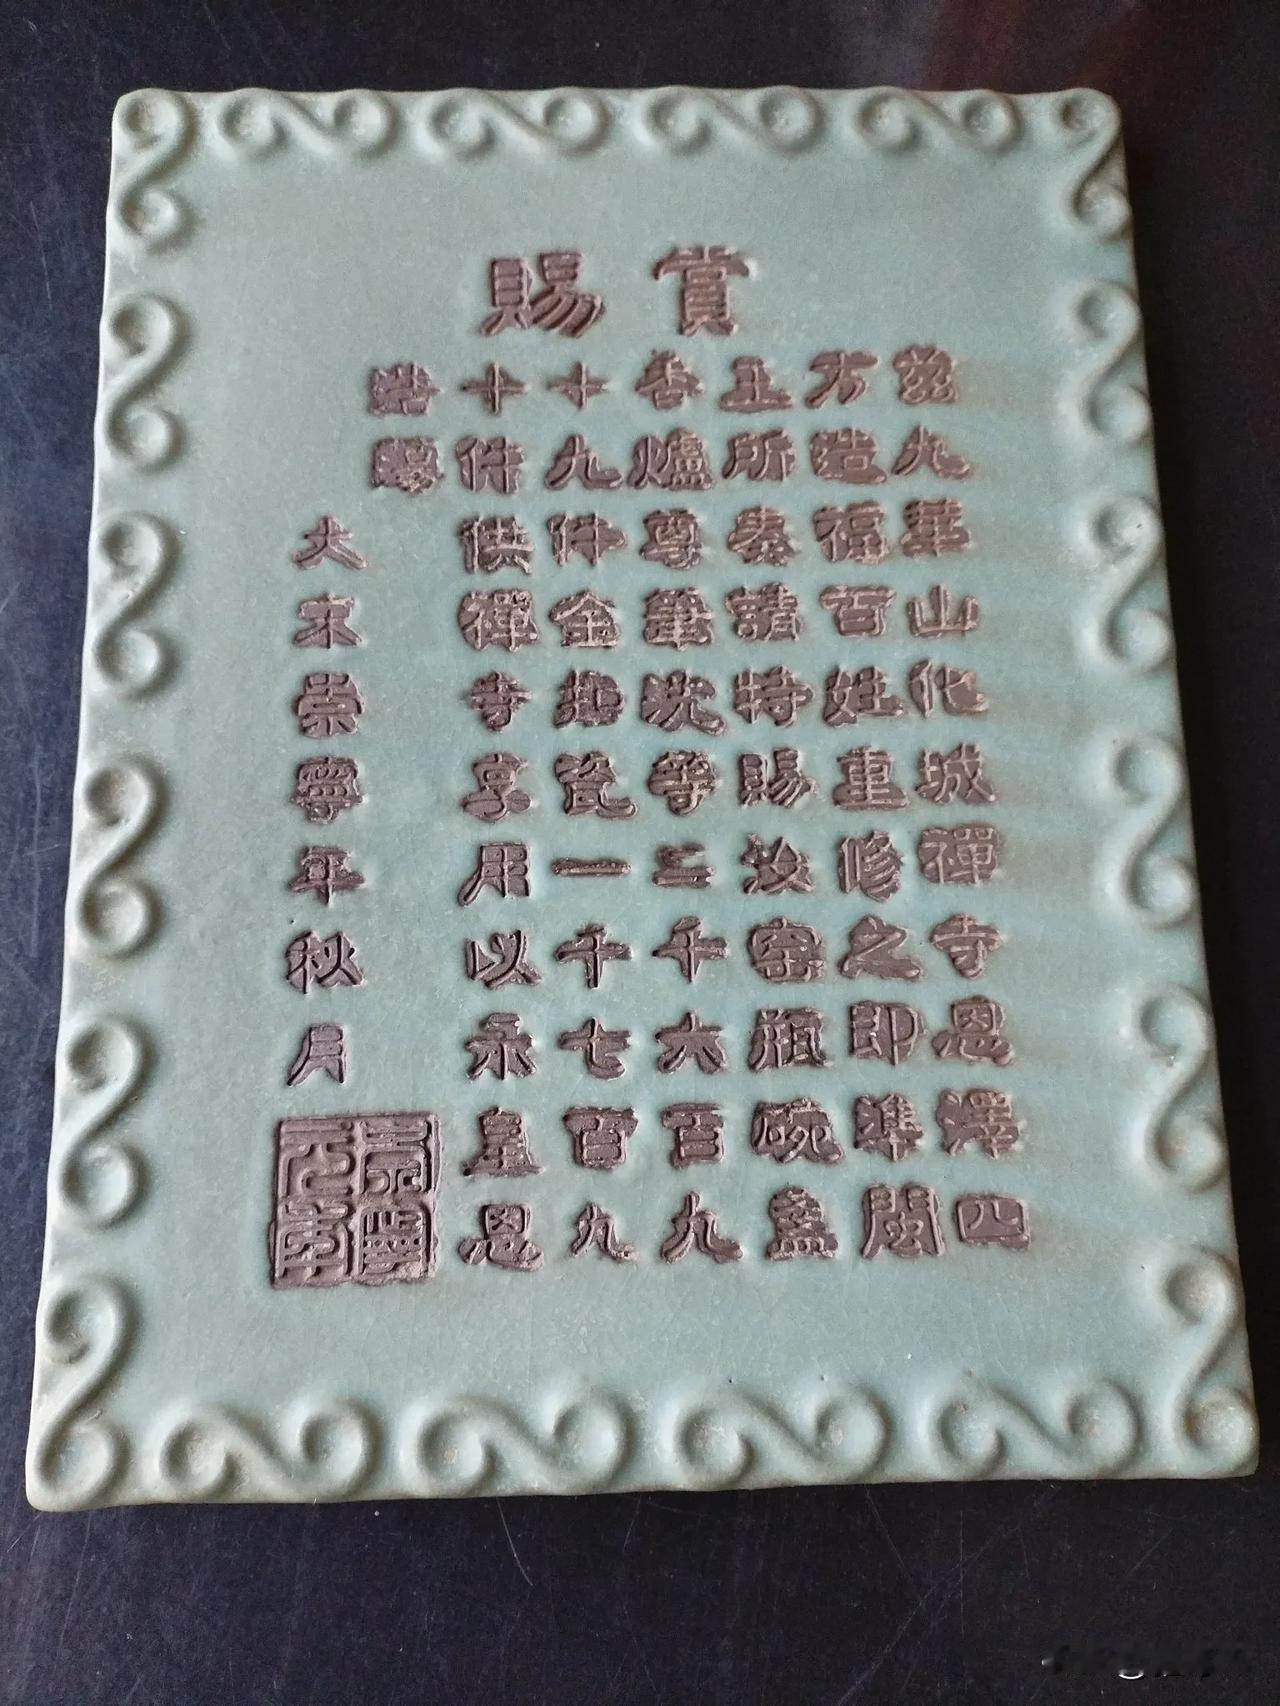 賞賜
茲九華山化城禪寺恩澤四
方造福百姓重修之即準閩
王所奏請特賜汝窑瓶碗盞
香爐尊筆洗等二千六百九
十九件金瓷一千七百九
十件供禪寺享用以永皇恩
浩
大宋崇寧年秋月